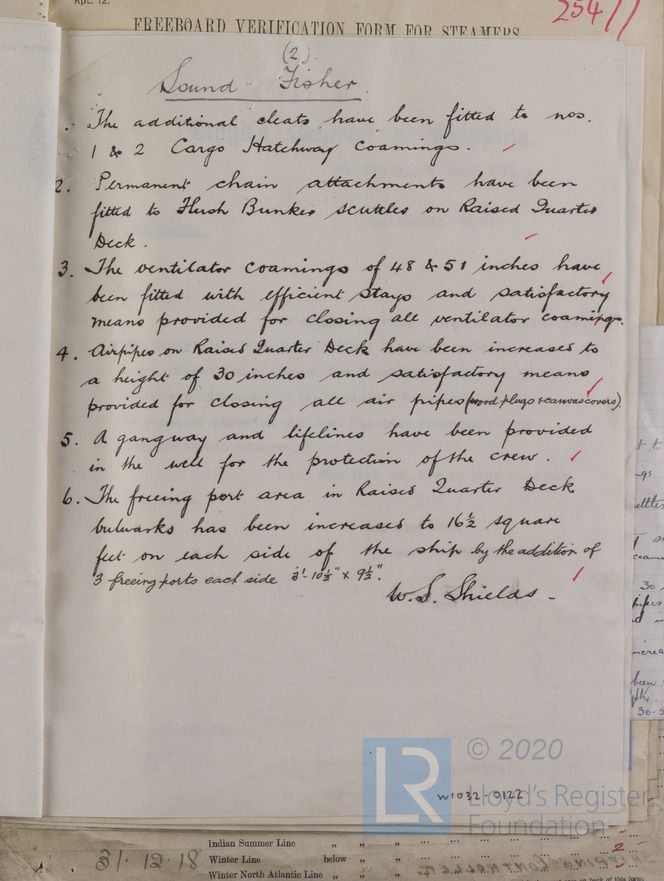 Rpt. 12.
254
FREEBOARD VERIFICATION FORM FOR STEAMERS
(2).
Sound Fisher.
. The additional cleats have been fitted to nos.
1 & 2 Cargo Hatchway coamings.
2. Permanent chain attachments have been
fitted to Flush Bunker scuttles on Raised Quarter
Deck.
3. The ventilator coamings of 48 & 51 inches have
been fitted with efficient stays and satisfactory
means provided for closing all ventilator coamings.
4. Airpipes on Raised Quarter Deck have been increased to
a height of 30 inches and satisfactory means
provided for closing all air pipes (wood plugs & canvas covers).
5. A gangway and lifelines have been provided
in the well for the protection of the crew.
6. The freeing port area in Raised Quarter Deck
bulwarks has been increased to 16½ square
feet on each side of the ship by the addition of
3 freeing ports each side 3'-10½" x 9½".
W. S. Shields -
© 2020
LR
W1032-0122
Lloyd's Register
Foundation
31.12.18
Indian Summer Line " " ...
Winter Line below " ... 2
Winter North Atlantic Line " " ...